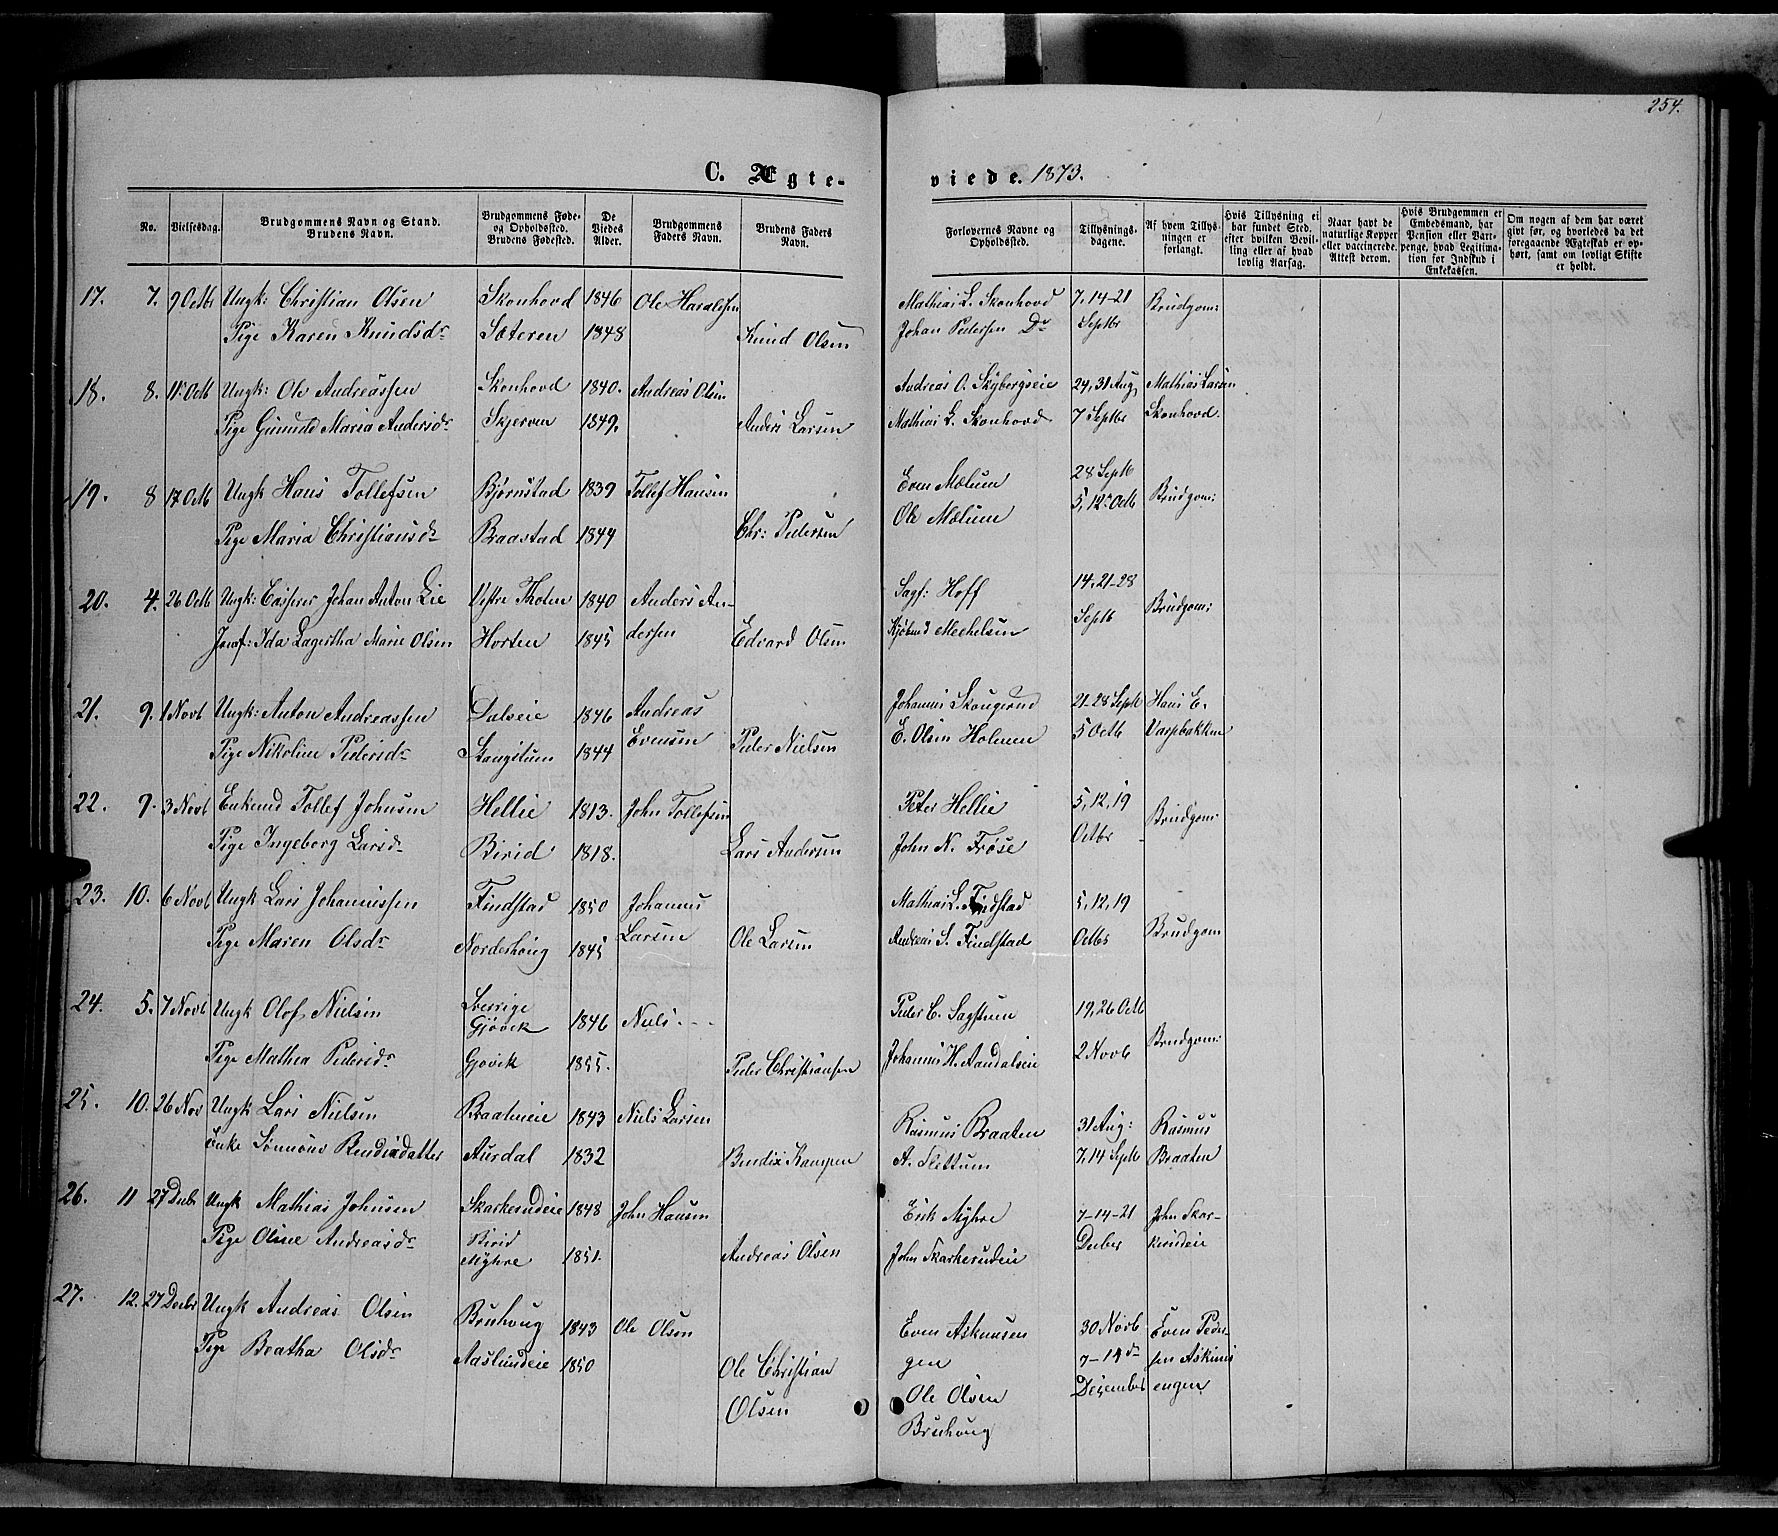 254.
C. Ægteviede. 1873.
No.
Vielsesdag.
Brudgommens Navn og Stand.
Brudens Navn.
Brudgommens Føde-
og Opholdssted.
Brudens Fødested.
De
Viedes
Alder.
Brudgommens
Faders Navn.
Brudens Faders
Navn.
Forlovernes Navne og
Opholdssted.
Tillysnings-
dagene.
Af hvem Tillys-
ningen er
forlangt.
Hvis Tillysning ei
har fundet Sted,
efter hvilken Bevil-
ling eller af hvad
lovlig Aarsag.
Naar havt de
naturlige Kopper
eller vaccinerede.
Attest derom.
Hvis Brudgommen er
Embedsmand, har
Pension eller Vart-
penge, hvad Legitima-
tion for Indskud i
Enkekassen.
Om nogen af dem har været
givt før, og hvorledes da det
foregaaende Ægteskab er op-
hørt, samt om lovligt Skifte
er holdt.
17. 7. 9 Octb Ungk: Christian Olsen Skonhovd 1846 Ole Haraldsen Mathias L. Skonhovd 7, 14-21 Brudgom:
Pige Karen Knudsdr Sæteren 1848 Knud Olsen Johan Pedersen Do Septbr
18. 8. 11 Octb Ungk: Ole Andreassen Skonhovd 1840. Andreas Olsen Andreas O. Skybergseie 24, 31 Aug, Mathias Larsen
Pige Gunild Maria Andersdr Skjerven 1849. Anders Larsen Mathias L. Skonhovd 7 Septbr Skonhovd
19. 8 17 Octb Ungk Hans Tollefsen Bjørnstad 1839 Tollef Hansen Even Mælum 28 Septb Brudgom:
Pige Maria Christiansdr Braastad 1844 Chr: Pedersen Ole Mælum 5, 12 Octb
20. 4. 26 Octb Ungk: Casserer Johan Anton Lie Vestre Thoten 1840 Anders An- Sagf: Hoff 14, 21-28 Brudgom:
Jomf: Ida Lagertha Marie Olsen Horten 1845 dersen Edvard Olsen Kjøbmd Mechelsen Septb
21. 9. 1 Novb Ungk: Anton Andreassen Dalseie 1846 Andreas Johannes Skougerud 21-28 Septb Hans E.
Pige Nikoline Pedersdr Stangstuen 1844 Evensen Peder Nielsen E. Olsen Holmen 5 Octb Varpbakken
22. 9. 3 Novb Enkemd Tollef Johnsen Hellie 1813. John Tollefsen Peter Hellie 5, 12, 19 Brudgom:
Pige Ingeborg Larsdr Birid 1818. Lars Andersen John N. Frøse Octbr
23. 10. 6 Novb Ungk Lars Johannessen Findstad 1850 Johannes Mathias L. Findstad 5, 12, 19 Brudgom
Pige Maren Olsdr Nordenhoug 1845 Larsen Ole Larsen Andreas S. Findstad Octbr
24. 5. 7 Novb Ungk Olof Nielsen Sverrige
Gjøvik 1846 Niels - - - Peder C. Sagstuen 19, 26 Octb Brudgom:
Pige Mathea Pedersdr Gjøvik 1855. Peder Christiansen Johannes H. Aandalseie 2 Novb
25. 10. 26 Nov Ungk Lars Nielsen Braateneie 1843 Niels Larsen Rasmus Braaten 31 Aug: Rasmus
Enke Sønnøve Bendixdatter Aurdal 1832 Bendix Kampen A. Slettum 7, 14 Septb Braaten
26. 11 27 Decbr Ungk Mathias Johnsen Skarkerudeie 1848 John Hansen Erik Myhre 7-14-21 John Skar-
Pige Oline Andreasdr Birid
Myhre 1851. Andreas Olsen John Skarkerudeie Decbr kerudeie
27. 12. 27 Decbr Ungk Andreas Olsen Bruhoug 1843 Ole Olsen Even Askeneen 30 Novb Even Peder-
Pige Beatha Olsdr Aaslundeie 1850 Ole Christian gen 7-14de sen Askenes
Olsen Ole Olsen Dezember engen
Bruhoug